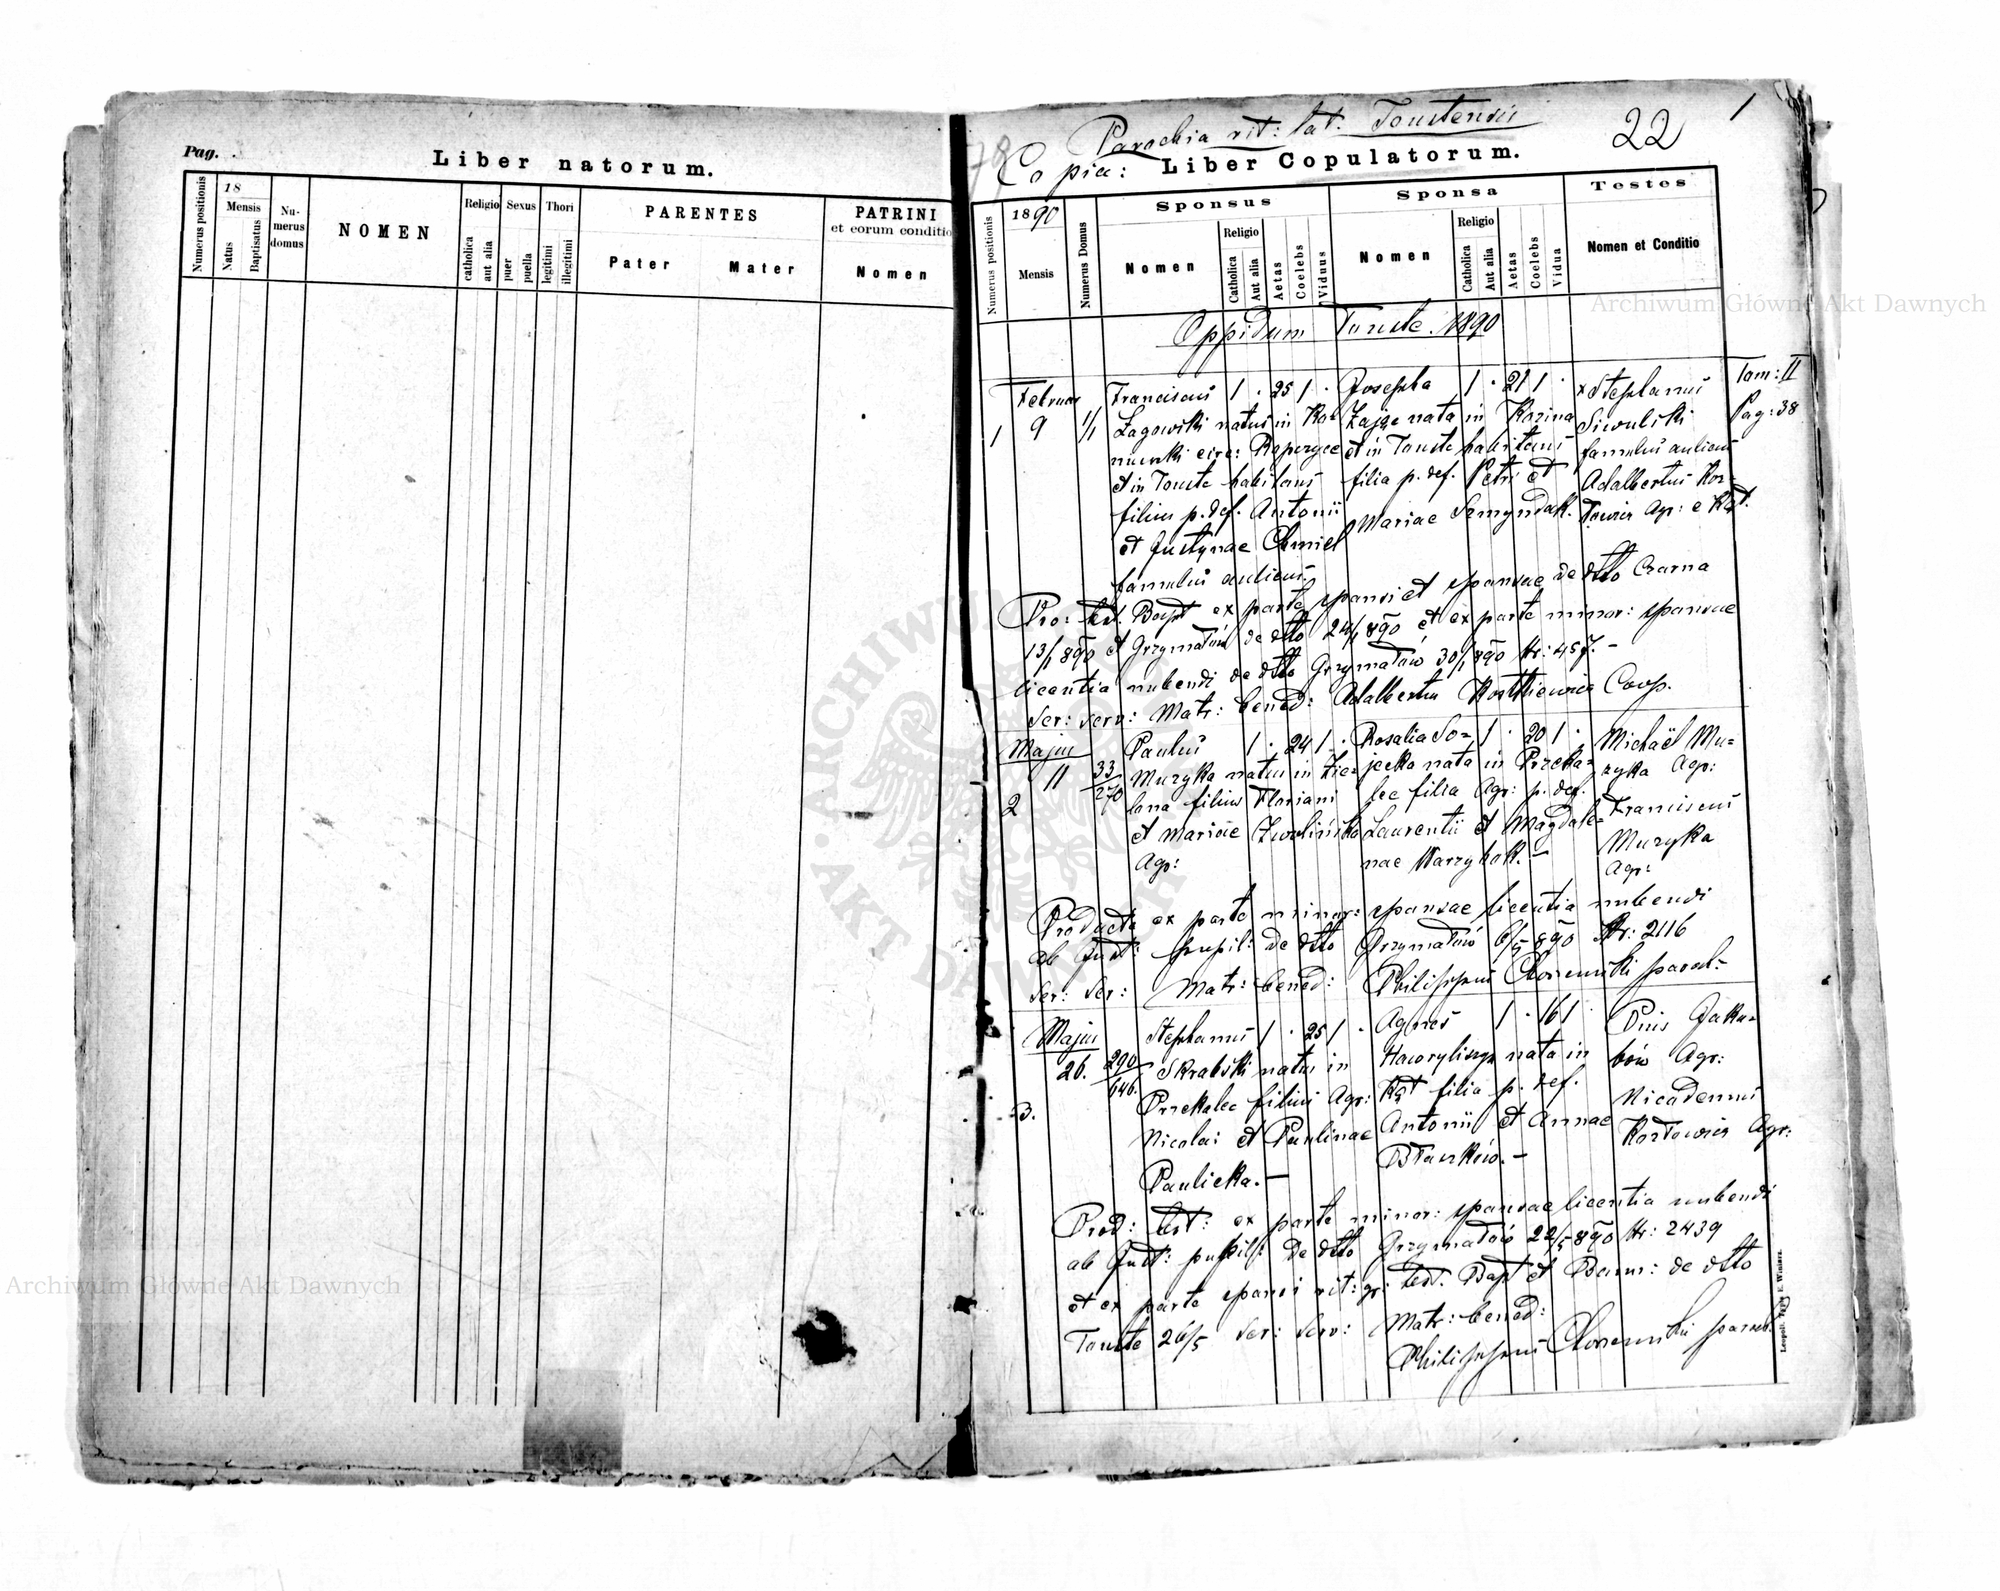 Pag.
Liber natorum.
Numerus positionis
18
Mensis
Natus
Baptisatus
Numerus domus
NOMEN
Religio
catholica
aut alia
Sexus
puer
puella
Thori
legitimi
illegitimi
PARENTES
Pater
Mater
PATRINI
et eorum conditio
Nomen
Parochia rit: lat: Toustensis
22
1
Copia: Liber Copulatorum.
Numerus positionis
1890
Mensis
Numerus Domus
Sponsus
Nomen
Religio
Catholica
Aut alia
Aetas
Coelebs
Viduus
Sponsa
Nomen
Religio
Catholica
Aut alia
Aetas
Coelebs
Vidua
Testes
Nomen et Conditio
Oppidum Touste. 1890
Tom: II
Pag: 38
1
Februar
9
1/1
Franciscus 1 . 25 1 .
Żagowski natus in
circ: Ropczyce
et in Touste habitans
filius p. def. Antonii
et Justynae Chmiel
famulus aulicus.
Josepha 1 . 21 1 .
Zając nata in Kozina
et in Touste habitans
filia p. def. Petri et
Mariae Szmyndak.
x Stephanus
Siwulski
famulus aulicus
Adalbertus Koz-
łowicz Agr: e Kąt.
Pro: test. Bapt ex parte sponsi et sponsae de dtto Czarna
13/1 890 et Grzymałów de dtto 24/1 890 et ex parte minor: sponsae
licentia nubendi de dtto Grzymałów 30/1 890 Nr: 457. -
Ser: serv: Matr: bened: Adalbertus Coop.
2
Majus
11
33/270
Paulus 1 . 24 1 .
Muzyka natus in Zie-
lona filius Floriani
et Mariae Zwolińska
Agr:
Rosalia So- 1 . 20 1 .
jecka nata in Przeka-
lec filia Agr: p. def.
Laurentii et Magdale-
nae Warzybok. -
Michaël Mu-
zyka Agr:
Franciscus
Muzyka
Agr:
Producta ex parte minor: sponsae licentia nubendi
ab Jud: pupil: de dtto Grzymałów 6/5 890 Nr: 2116
Ser: Ser: Matr: bened: Philippus paroch:
3.
Majus
26.
290/646.
Stephanus 1 . 25 1 .
Skrabski natus in
Przekalec filius Agr:
Nicolai et Paulinae
Paulicka. -
Agnes 1 . 16 1
nata in
Kąt filia p. def.
Antonii et Annae
Błaszków. -
Pius Jaku-
bów Agr:
Nicodemus
Kozłowicz Agr:
Prod: test: ex parte minor: sponsae licentia nubendi
ab Jud: pupill: de dtto Grzymałów 22/5 890 Nr: 2439
et ex parte sponsi rit: gr: test. Bapt et Bann: de dtto
Touste 26/5 Ser: Serv: Matr: bened:
Philippus paroch:
Leopoli. Typis E. Winiarz.
Archiwum Główne Akt Dawnych
Archiwum Główne Akt Dawnych